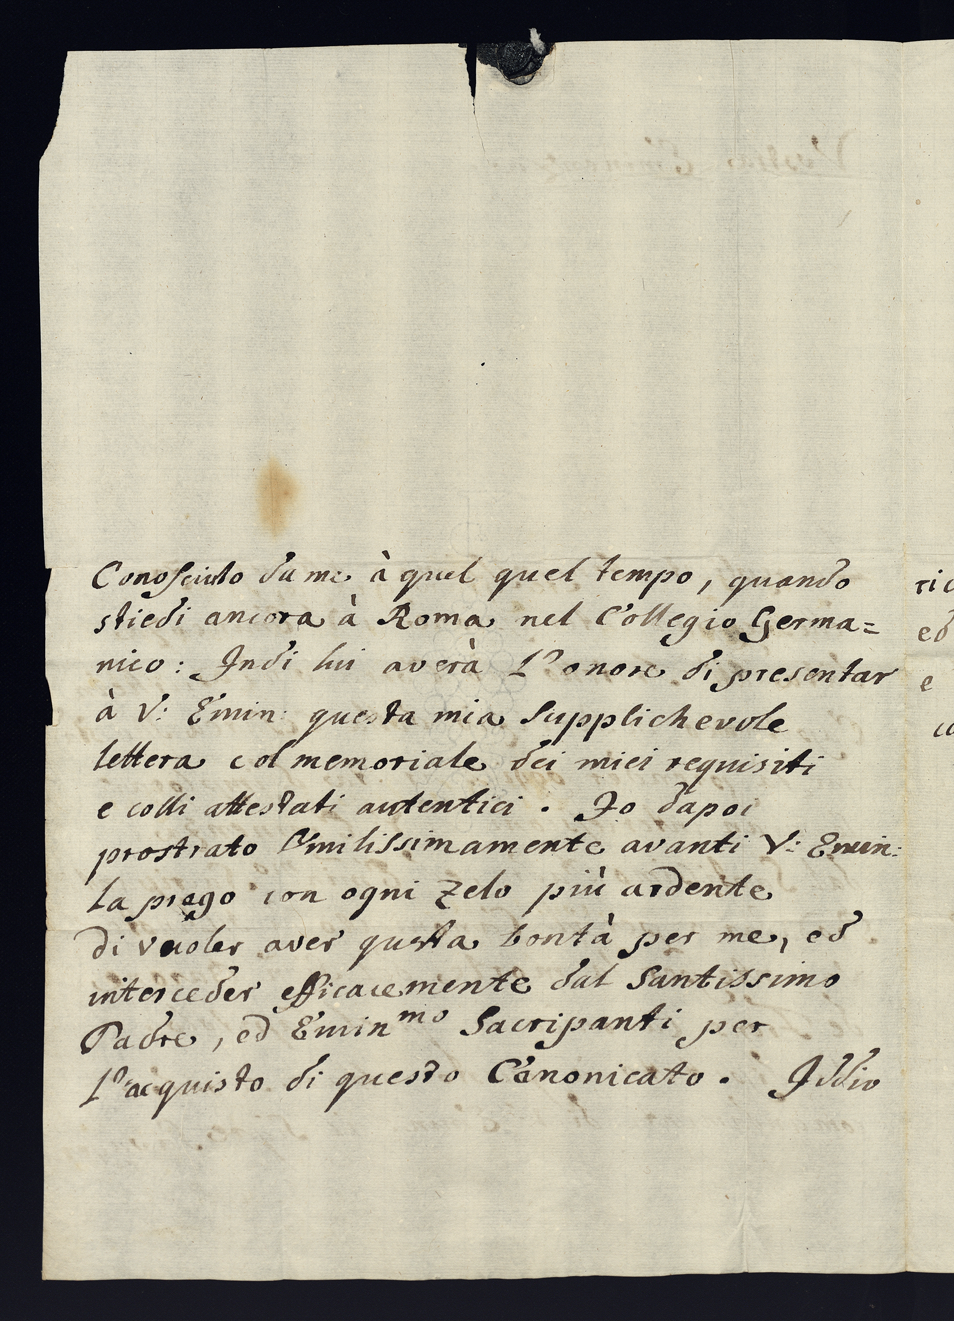 Conosciuto da me à quel quel tempo, quando
stiedi ancora à Roma nel Collegio Germa=
nico: Indi lui averà l'onore di presentar
à V: Emin: questa mia supplichevole
lettera col memoriale dei miei requisiti
e colli attestati autentici. Io dapoi
prostrato Umilissimamente avanti V: Emin:
la prego con ogni zelo più ardente
di vuoler aver questa bontà per me, ed
interceder efficacemente dal Santissimo
Padre, ed Emin^mo Sacripanti per
l'acquisto di questo Canonicato. Iddio
ed
e